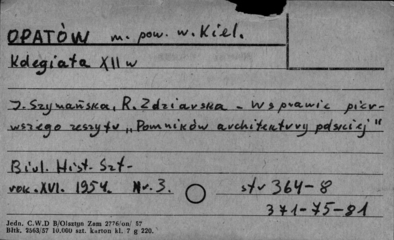 OPATÓW m. pow. w. Kiel.
Kolegiata XII w
J. Szymańska, R. Zdziarska - W sprawie pier-
wszego zeszytu "Pomników architektury polskiej"
Biul. Hist. Szt-
rok. XVI. 1954. Nr. 3. str 364-8
371-75-81
Jedn. C.W.D B/Olsztyn Zam 2776/on/ 57
Błtk. 3563/57 10.000 szt. karton kl. 7 g 220.